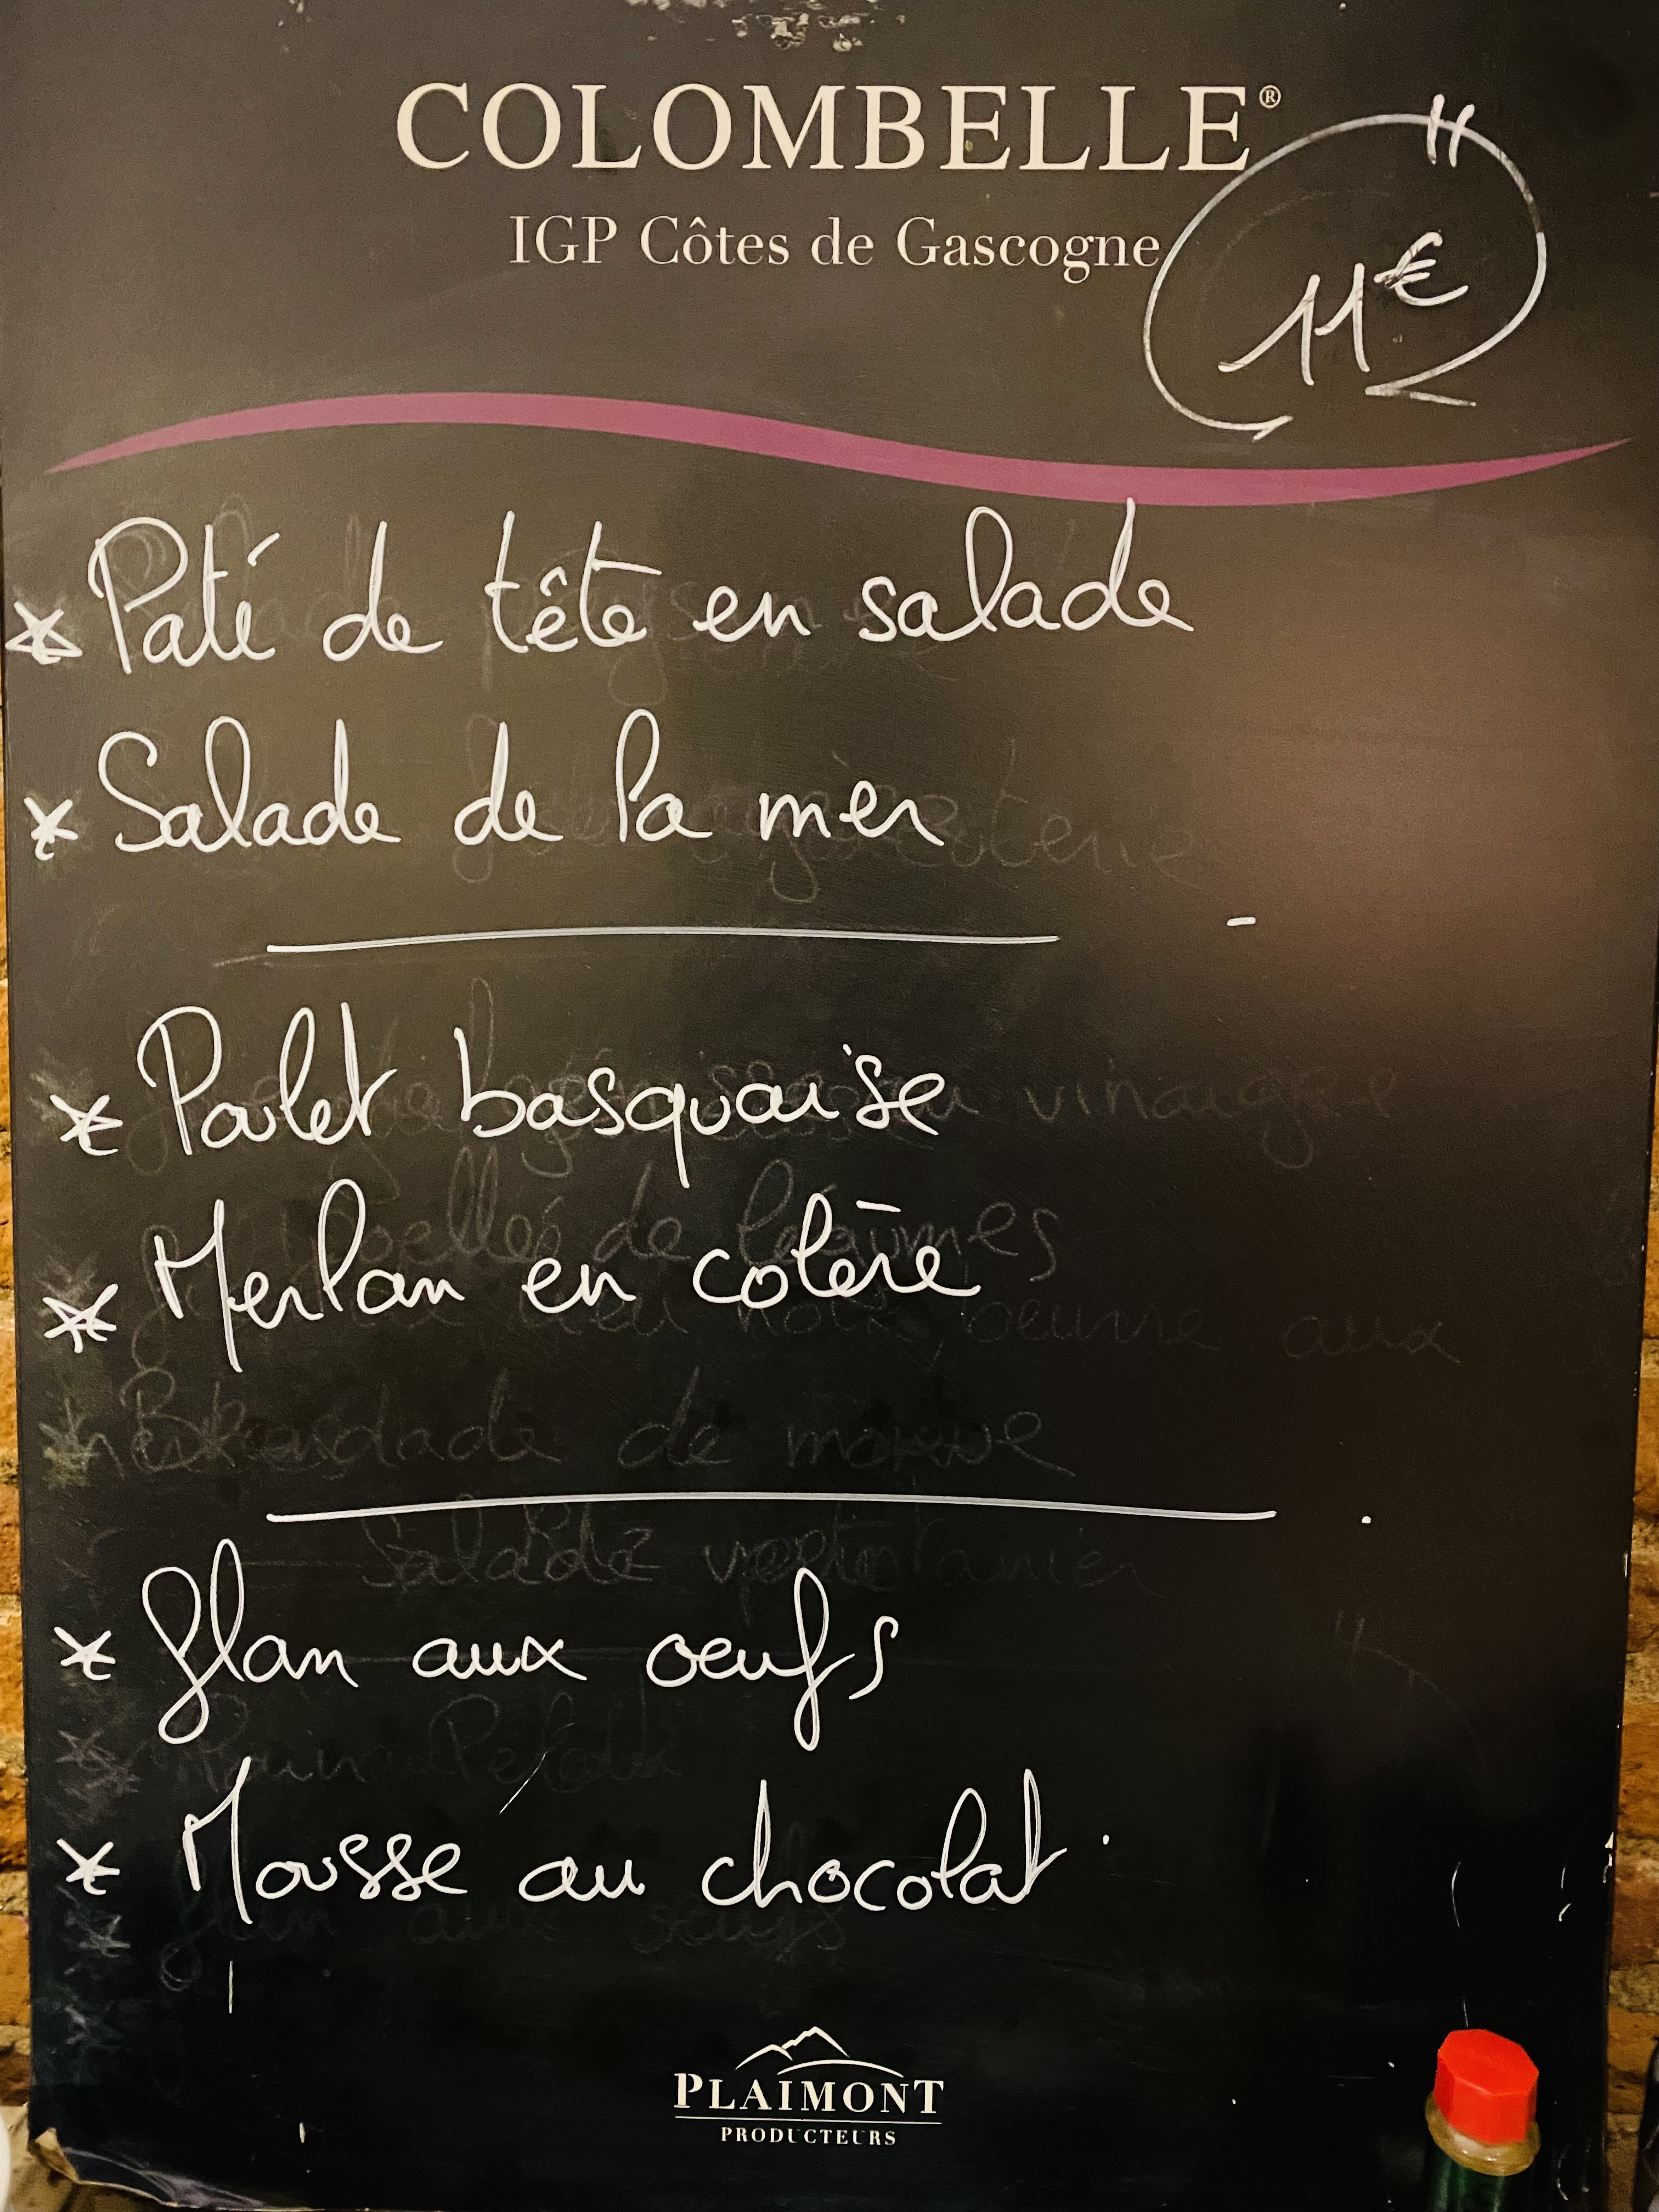 COLOMBELLE®
IGP Côtes de Gascogne
11€
* Paté de tête en salade
* Salade de la mer
* Poulet basquaise
* Merlan en colère
* flan aux oeufs
* Mousse au chocolat
PLAIMONT
PRODUCTEURS